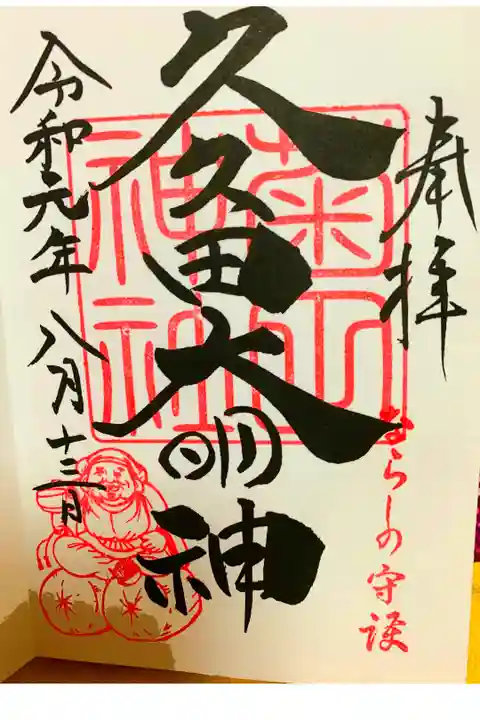 奉拝
ならしの守護
久久田大明神
菊田
神社
令和元年八月十三日